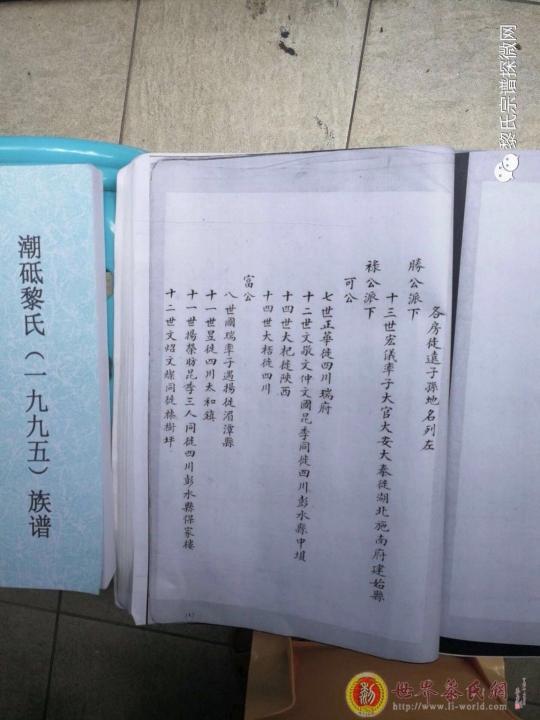 各房徒遠子孫地名列左
勝公派下
十三世宏議率子大官大安大泰徒湖北施南府建始縣
祿公派下
可公
七世正華徒四川瑞府
十二世文敬文仲文國昆季同徒四川彭水縣中壩
十四世大杞徒陝西
十四世大楷徒四川
富公
八世國瑞率子遇揚徒湄潭縣
十一世星徒四川太和鎮
十一世揚榮昉昆季三人同徒四川彭水縣保家樓
十二世文炤文燦同徒樹坪
潮砥黎氏（一九九五）族谱
黎氏宗谱探微网
世界黎氏網
http://www.li-world.com